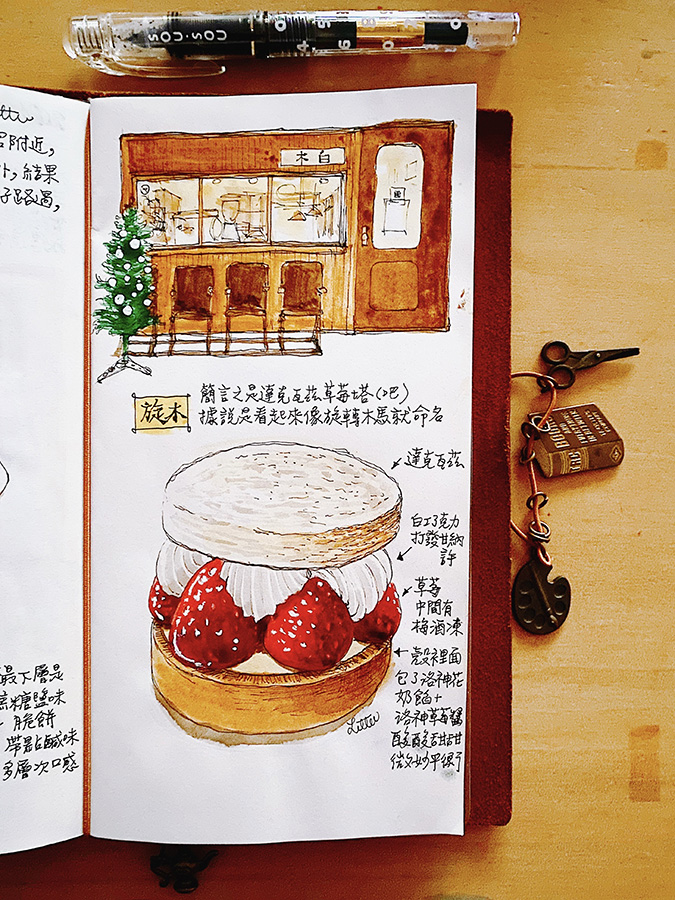 SOU·SOU
呂附近,
外, 結果
子路過,
木白
旋木
簡言之是達克瓦茲草莓塔(吧)
據說是看起來像旋轉木馬就命名
達克瓦茲
白巧克力
打發甘納
許
草莓
中間有
梅酒凍
殼裡面
包了洛神花
奶餡+
洛神草莓醬
酸酸甜甜
微妙平衡
Littu
最下層是
焦糖鹽味
脆餅
帶點鹹味
多層次口感